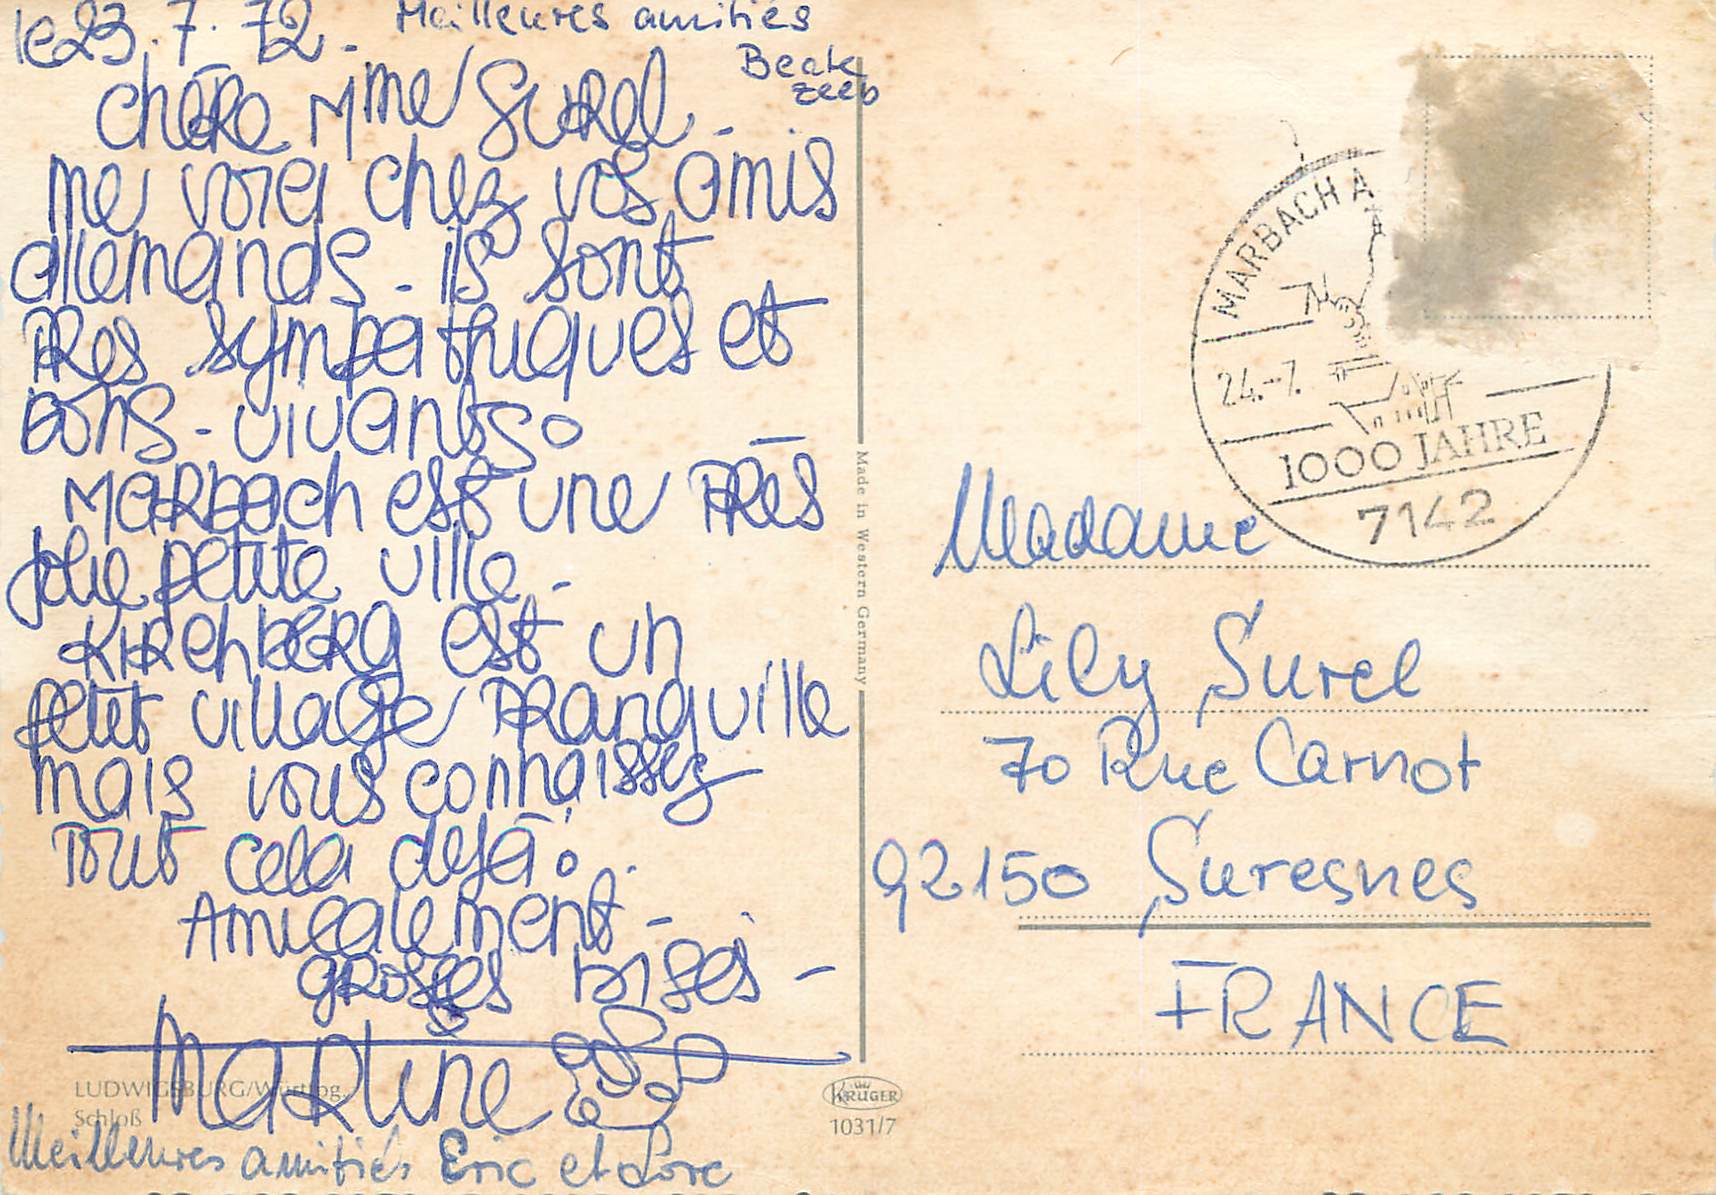 le 23.7.72.
Meilleures amitiés
Beate
Zeeb
Chère Mme Surel -
me voici chez vos amis
allemands - ils sont
Très sympathiques et
bons - vivants.
Marbach est une Très
jolie petite ville -
Kirchberg est un
petit village Tranquille
mais vous connaissez
Tout cela déjà.
Amicalement -
grosses bises -
Martine
Meilleures amitiés Eric et Lore
LUDWIGSBURG/Württbg.
Schloß
Made in Western Germany
KRÜGER
1031/7
MARBACH A
24.-7.
1000 JAHRE
7142
Madame
Lily Surel
70 Rue Carnot
92150 Suresnes
FRANCE